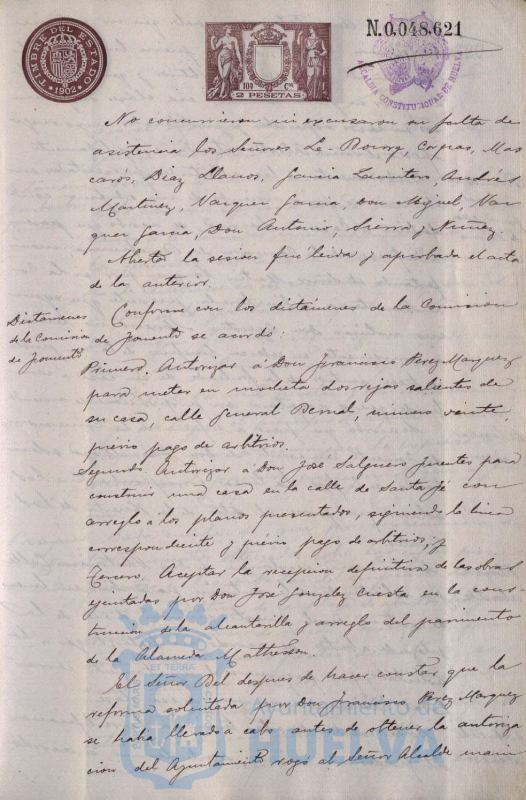 TIMBRE DEL ESTADO
1902
100 Cs
2 PESETAS
N. 0,048,621
ALCALDIA CONSTITUCIONAL DE HUELVA
No concurrieron ni excusaron su falta de
asistencia los Señores Le-Bourg, Mas
carós, Diaz Llanos, Garcia Andrés
Martinez, Vazquez Garcia, Don Miguel, Vaz
quez Garcia, Don Antonio, Sierra y Nuñez.
Abierta la sesion fue leida y aprobada el acta
de la anterior.
Dictámenes
de la Comision
de Fomento
Conforme con los dictámenes de la Comision
de Fomento se acordó:
Primero. Autorizar á Don Francisco Perez Marquez
para meter en dos rejas salientes de
su casa, calle General Bernal, número veinte,
prévio pago de arbitrios.
Segundo. Autorizar á Don José Salguero Fuentes para
construir una casa en la calle de Santa Fé con
arreglo á los planos presentados, siguiendo la linea
correspondiente y prévio pago de arbitrios; y
Tercero. Aceptar la recepcion definitiva de las obras
ejecutadas por Don José Gonzalez Cuesta en la cons-
truccion de la alcantarilla y arreglo del pavimento
de la Alameda Mathesson.
El Señor Del despues de hacer constar que la
reforma solicitada por Don Francisco Perez Marquez
se habia llevado á cabo antes de obtener la autoriza
cion del Ayuntamiento rogó al Señor Alcalde
ET TERRA
Ayuntamiento de
HUELVA